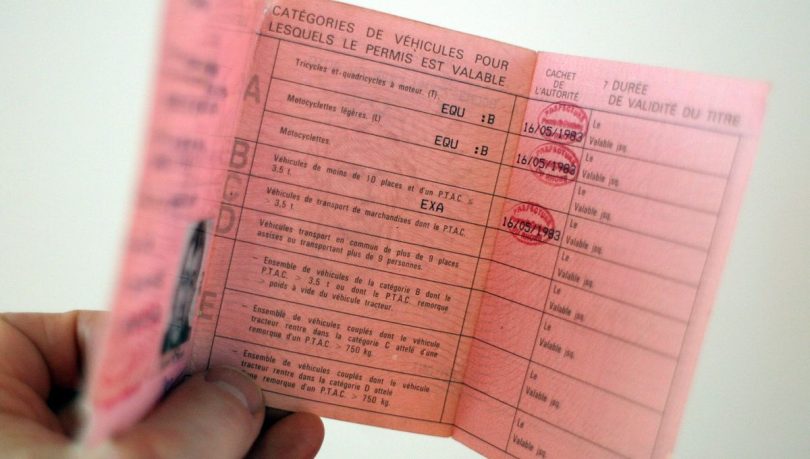 CATÉGORIES DE VÉHICULES POUR
LESQUELS LE PERMIS EST VALABLE
CACHET
DE
L'AUTORITÉ
7 DURÉE
DE VALIDITÉ DU TITRE
A
Tricycles et quadricycles à moteur. (T)
EQU :B
16/05/1983
Le
Valable jsq.
Motocyclettes légères. (L)
EQU :B
16/05/1983
Le
Valable jsq.
Motocyclettes.
Le
Valable jsq.
B
Véhicules de moins de 10 places et d'un P.T.A.C. ≤
3,5 t.
EXA
16/05/1983
Le
Valable jsq.
C
Véhicules de transport de marchandises dont le P.T.A.C.
> 3,5 t.
Le
Valable jsq.
D
Véhicules transport en commun de plus de 9 places
assises ou transportant plus de 9 personnes.
Le
Valable jsq.
E
- Ensemble de véhicules de la catégorie B dont le
P.T.A.C. > 3,5 t ou dont le P.T.A.C. remorque
> poids à vide du véhicule tracteur.
Le
Valable jsq.
- Ensemble de véhicules couplés dont le véhicule
tracteur rentre dans la catégorie C attelé d'une
remorque d'un P.T.A.C. > 750 kg.
Le
Valable jsq.
- Ensemble de véhicules couplés dont le véhicule
tracteur rentre dans la catégorie D attelé
d'une remorque d'un P.T.A.C. > 750 kg.
Le
Valable jsq.